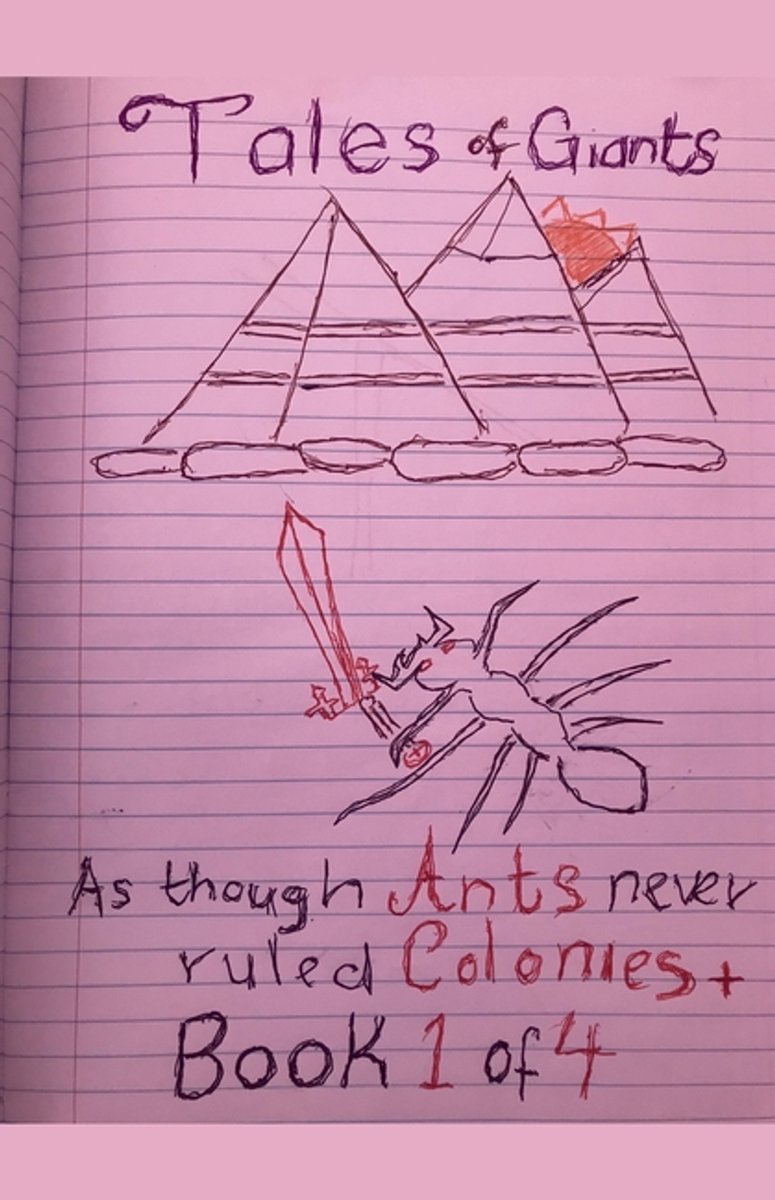 Tales of Giants
As though Ants never
ruled Colonies +
Book 1 of 4